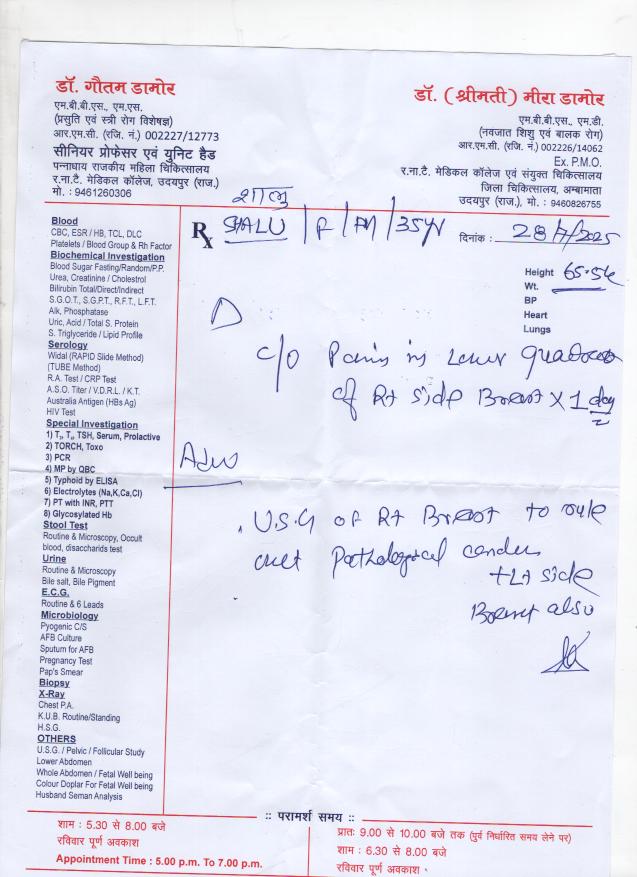 डॉ. गौतम डामोर
एम.बी.बी.एस., एम.एस.
(प्रसुति एवं स्त्री रोग विशेषज्ञ)
आर.एम.सी. (रजि. नं.) 002227/12773
सीनियर प्रोफेसर एवं युनिट हैड
पन्नाधाय राजकीय महिला चिकित्सालय
र.ना.टै. मेडिकल कॉलेज, उदयपुर (राज.)
मो. : 9461260306
डॉ. (श्रीमती) मीरा डामोर
एम.बी.बी.एस., एम.डी.
(नवजात शिशु एवं बालक रोग)
आर.एम.सी. (रजि. नं.) 002226/14062
Ex. P.M.O.
र.ना.टै. मेडिकल कॉलेज एवं संयुक्त चिकित्सालय
जिला चिकित्सालय, अम्बामाता
उदयपुर (राज.), मो. : 9460826755
शालु
Rx SHALU / F / / 35yr
दिनांक : 28/7/2025
Height 65.5k
Wt.
BP
Heart
Lungs
c/o Pain in Lower
of Rt side Breast x 1 day
Adv
. U.S.G of Rt Breast to rule
out Pathological
+ Lt side
Breast also
Blood
CBC, ESR / HB, TCL, DLC
Platelets / Blood Group & Rh Factor
Biochemical Investigation
Blood Sugar Fasting/Random/P.P.
Urea, Creatinine / Cholestrol
Bilirubin Total/Direct/Indirect
S.G.O.T., S.G.P.T., R.F.T., L.F.T.
Alk, Phosphatase
Uric, Acid / Total S. Protein
S. Triglyceride / Lipid Profile
Serology
Widal (RAPID Slide Method)
(TUBE Method)
R.A. Test / CRP Test
A.S.O. Titer / V.D.R.L. / K.T.
Australia Antigen (HBs Ag)
HIV Test
Special Investigation
1) T₃, T₄, TSH, Serum, Prolactive
2) TORCH, Toxo
3) PCR
4) MP by QBC
5) Typhoid by ELISA
6) Electrolytes (Na,K,Ca,Cl)
7) PT with INR, PTT
8) Glycosylated Hb
Stool Test
Routine & Microscopy, Occult
blood, disaccharids test
Urine
Routine & Microscopy
Bile salt, Bile Pigment
E.C.G.
Routine & 6 Leads
Microbiology
Pyogenic C/S
AFB Culture
Sputum for AFB
Pregnancy Test
Pap's Smear
Biopsy
X-Ray
Chest P.A.
K.U.B. Routine/Standing
H.S.G.
OTHERS
U.S.G. / Pelvic / Follicular Study
Lower Abdomen
Whole Abdomen / Fetal Well being
Colour Doplar For Fetal Well being
Husband Seman Analysis
:: परामर्श समय ::
शाम : 5.30 से 8.00 बजे
रविवार पूर्ण अवकाश
Appointment Time : 5.00 p.m. To 7.00 p.m.
प्रातः 9.00 से 10.00 बजे तक (पुर्व निर्धारित समय लेने पर)
शाम : 6.30 से 8.00 बजे
रविवार पूर्ण अवकाश